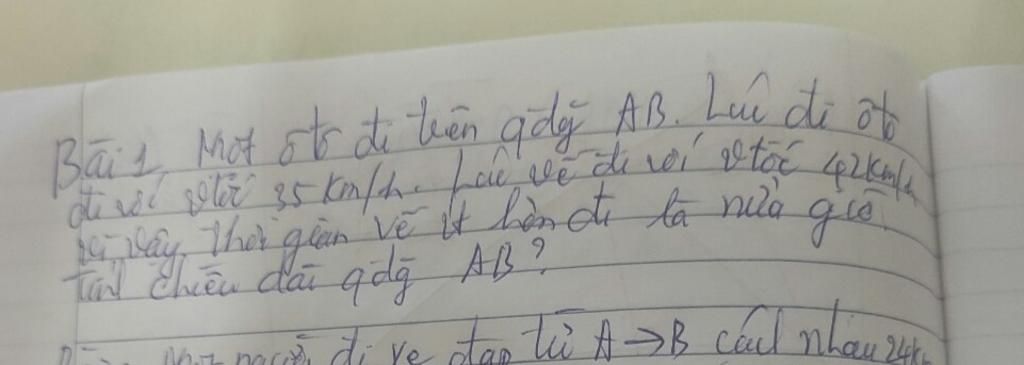 Bài 1 Một ôtô đi trên qđg AB. Lúc đi ôtô
đi với vtốc 35 km/h. Lúc về đi với vtốc 42 km/h
vì vậy thời gian về ít hơn đi là nửa giờ
tính chiều dài qđg AB?
người đi xe đạp từ A → B cách nhau 24k